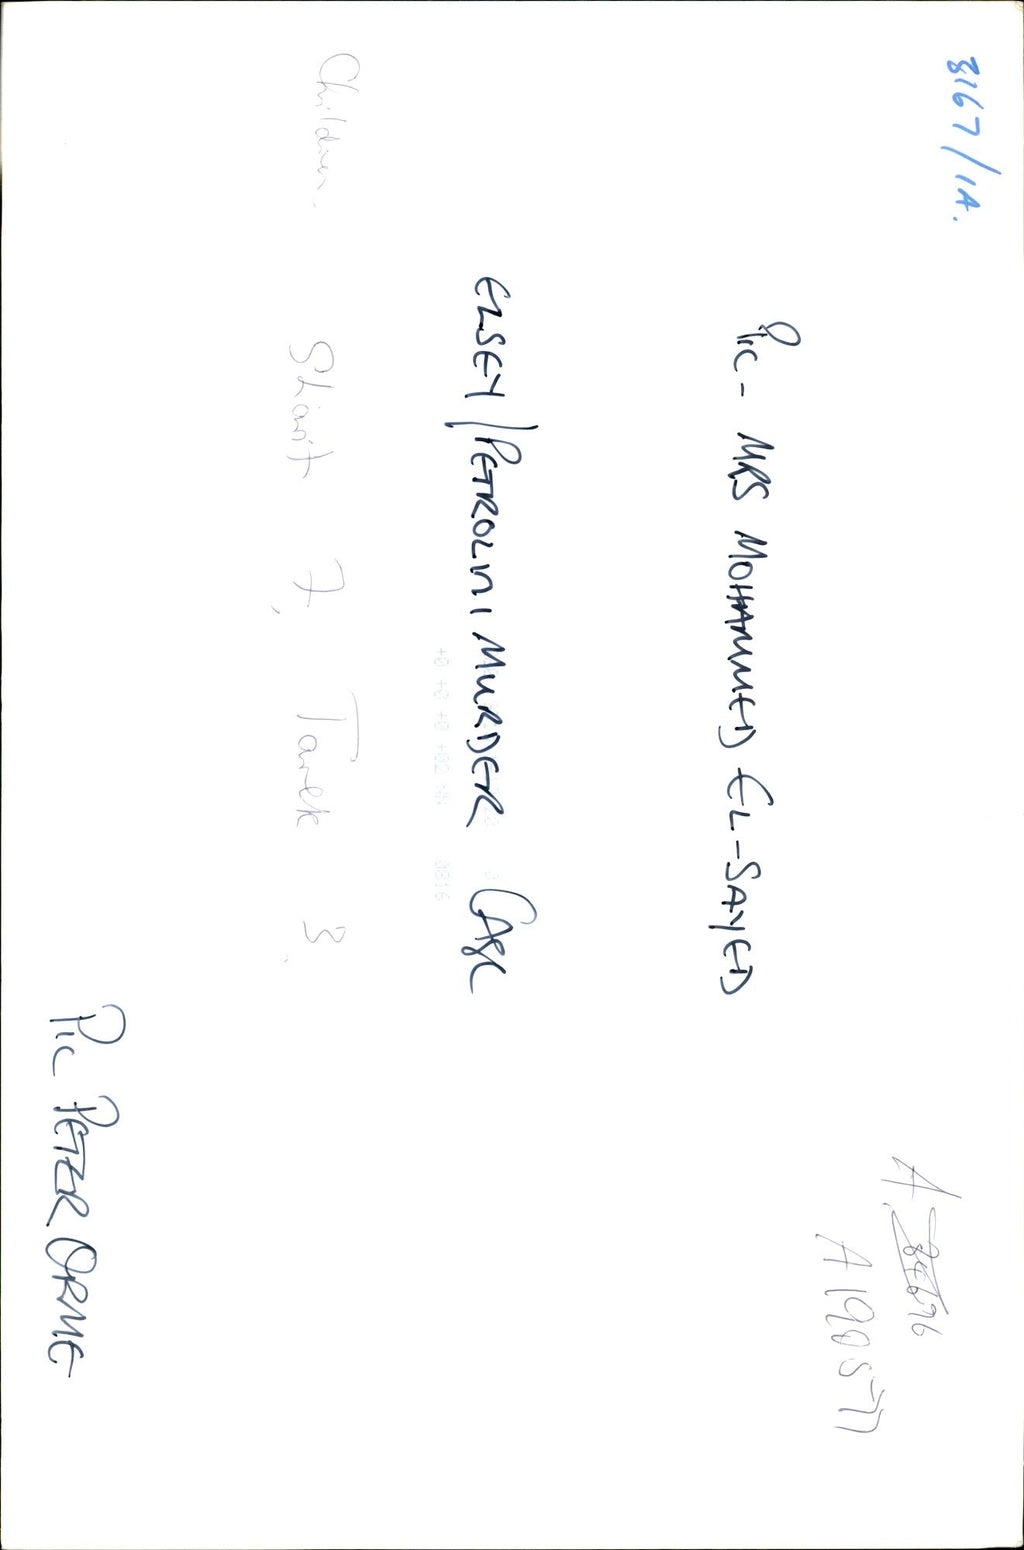 3167/1A.
Pic - MRS MOHAMMED EL-SAYED
ELSEY/PETROLINI MURDER CASE
+0 +0 +0 +02 NN
Children.
7, Tarek 3.
A
A190577
Pic PETER ORME